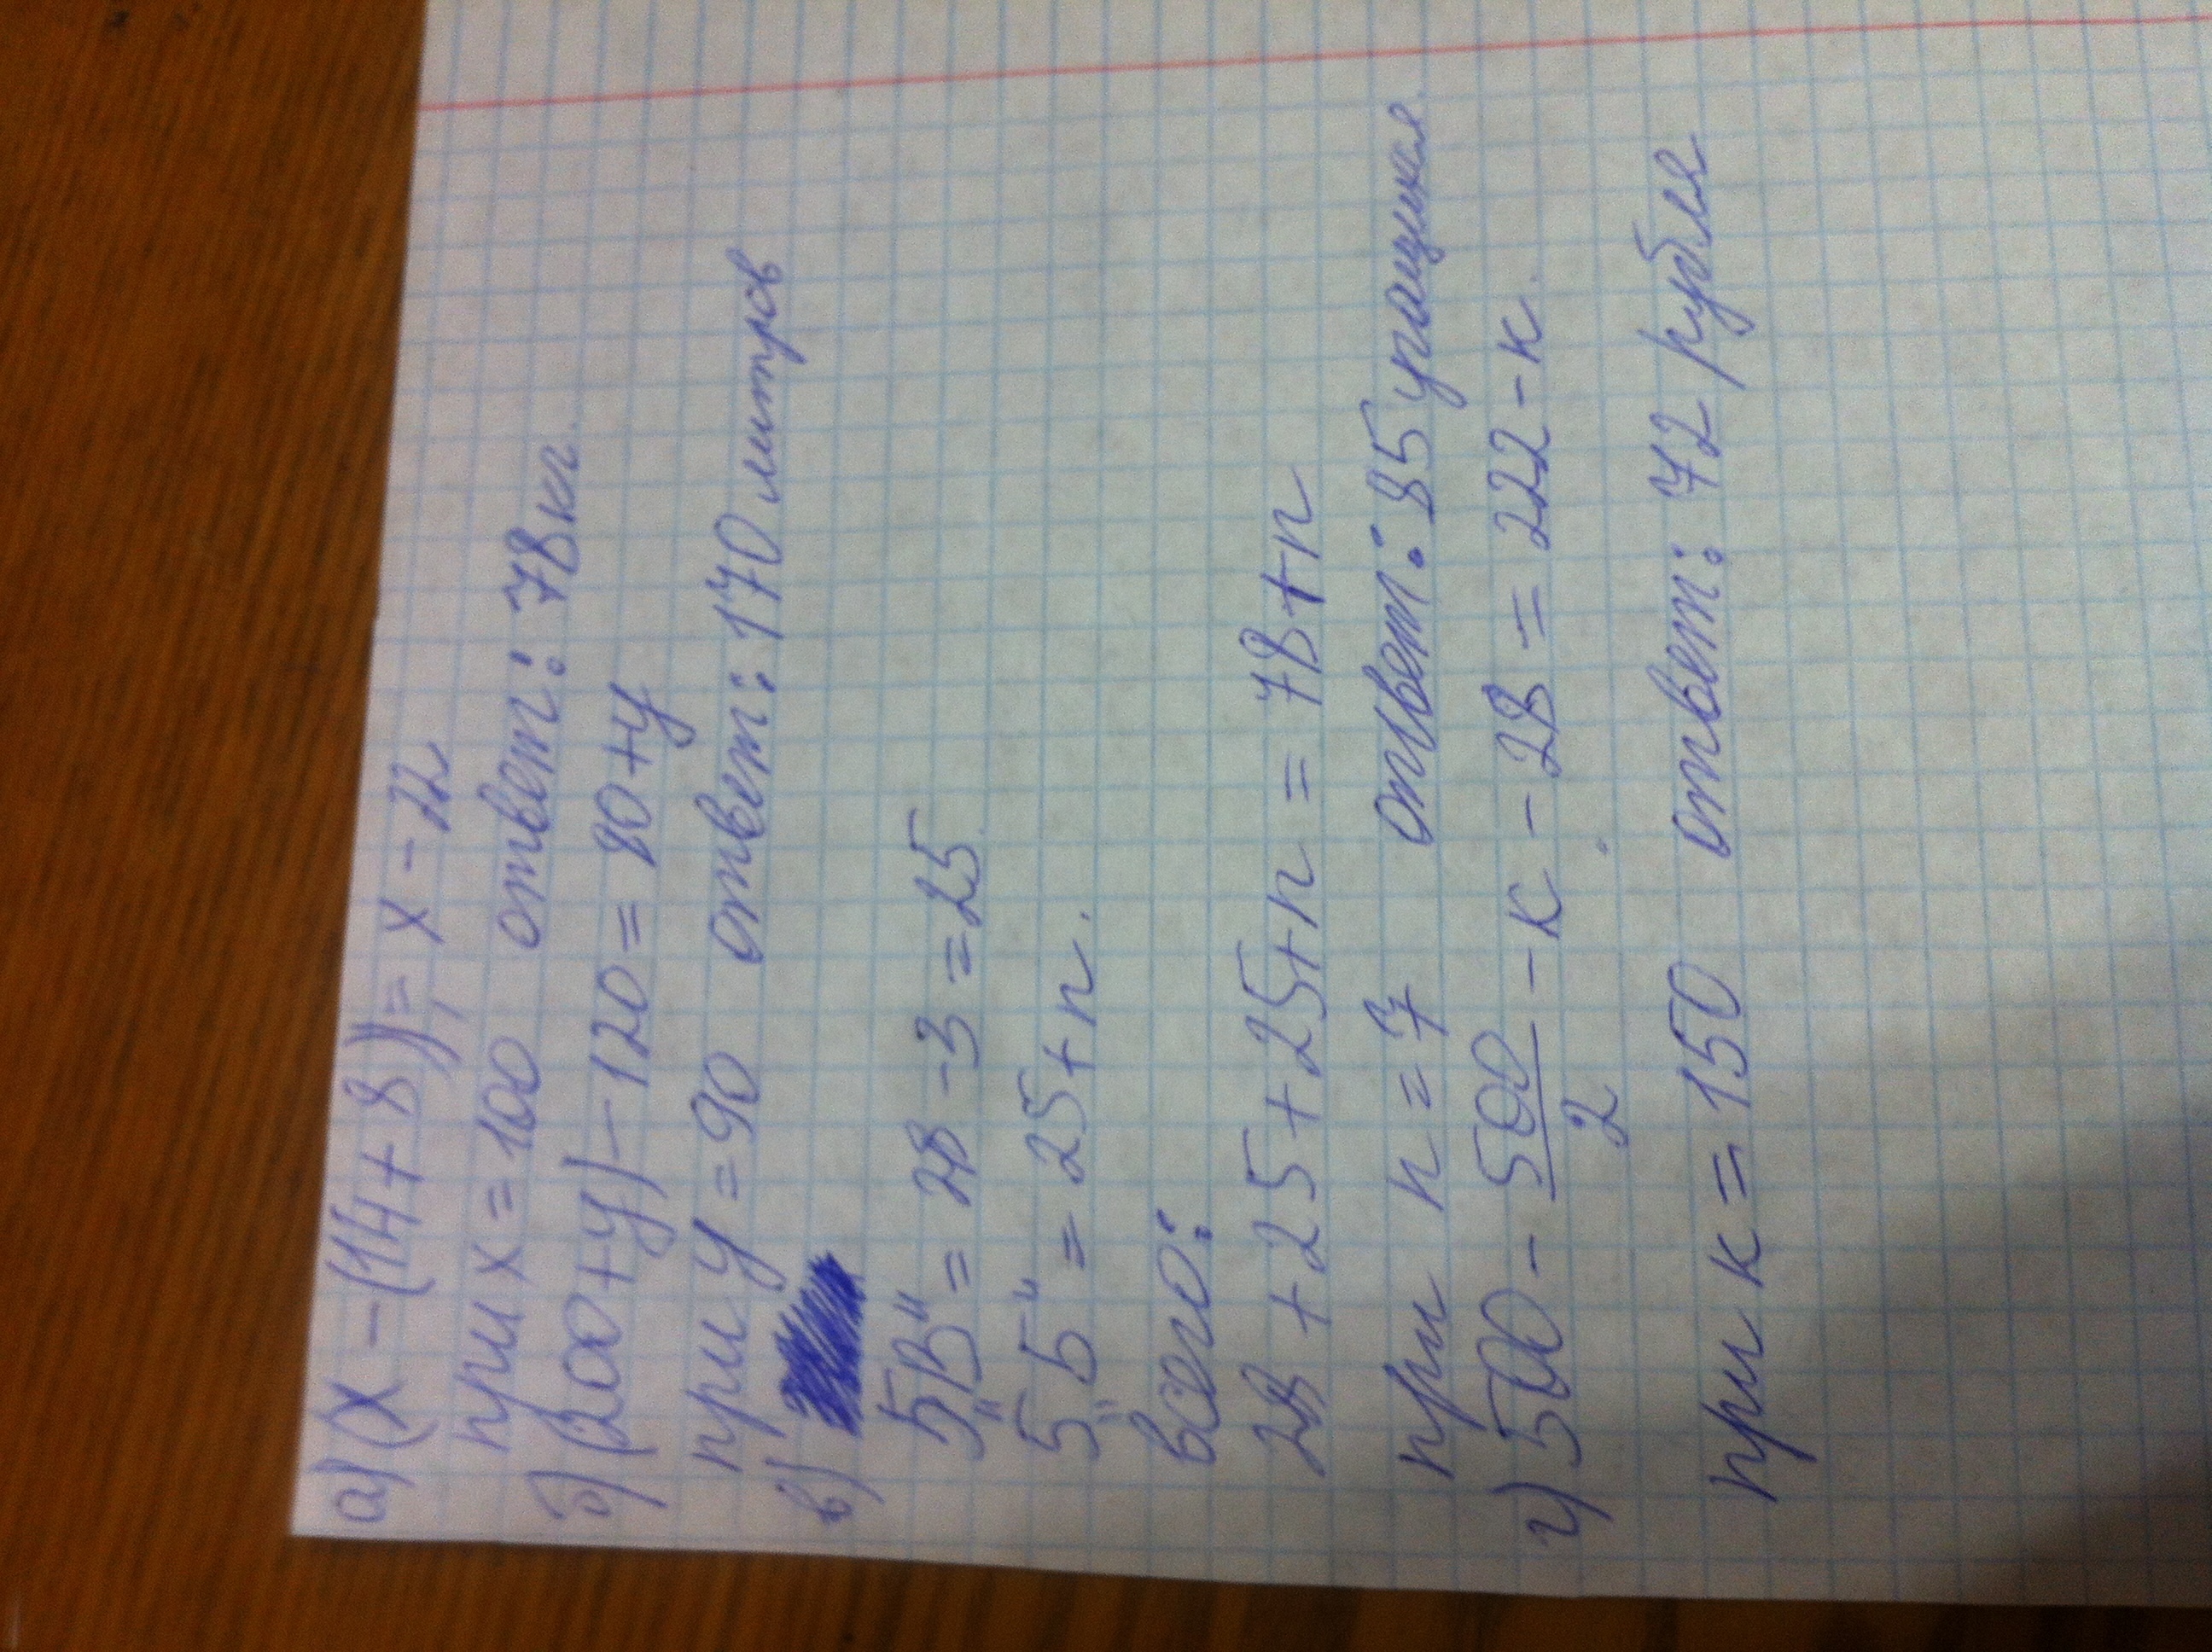 а) (х - (14 + 8)) = х - 22
при х = 100 ответ: 78 кг.
б) (200 + у) - 120 = 80 + у
при у = 90 ответ: 170 литров
в)
5 „В" = 28 - 3 = 25
5 „Б" = 25 + n.
всего:
28 + 25 + 25 + n = 78 + n
при n = 7 ответ: 85 учащихся
г) 500 - 500/2 - к - 28 = 222 - к.
при к = 150 ответ: 72 рубля